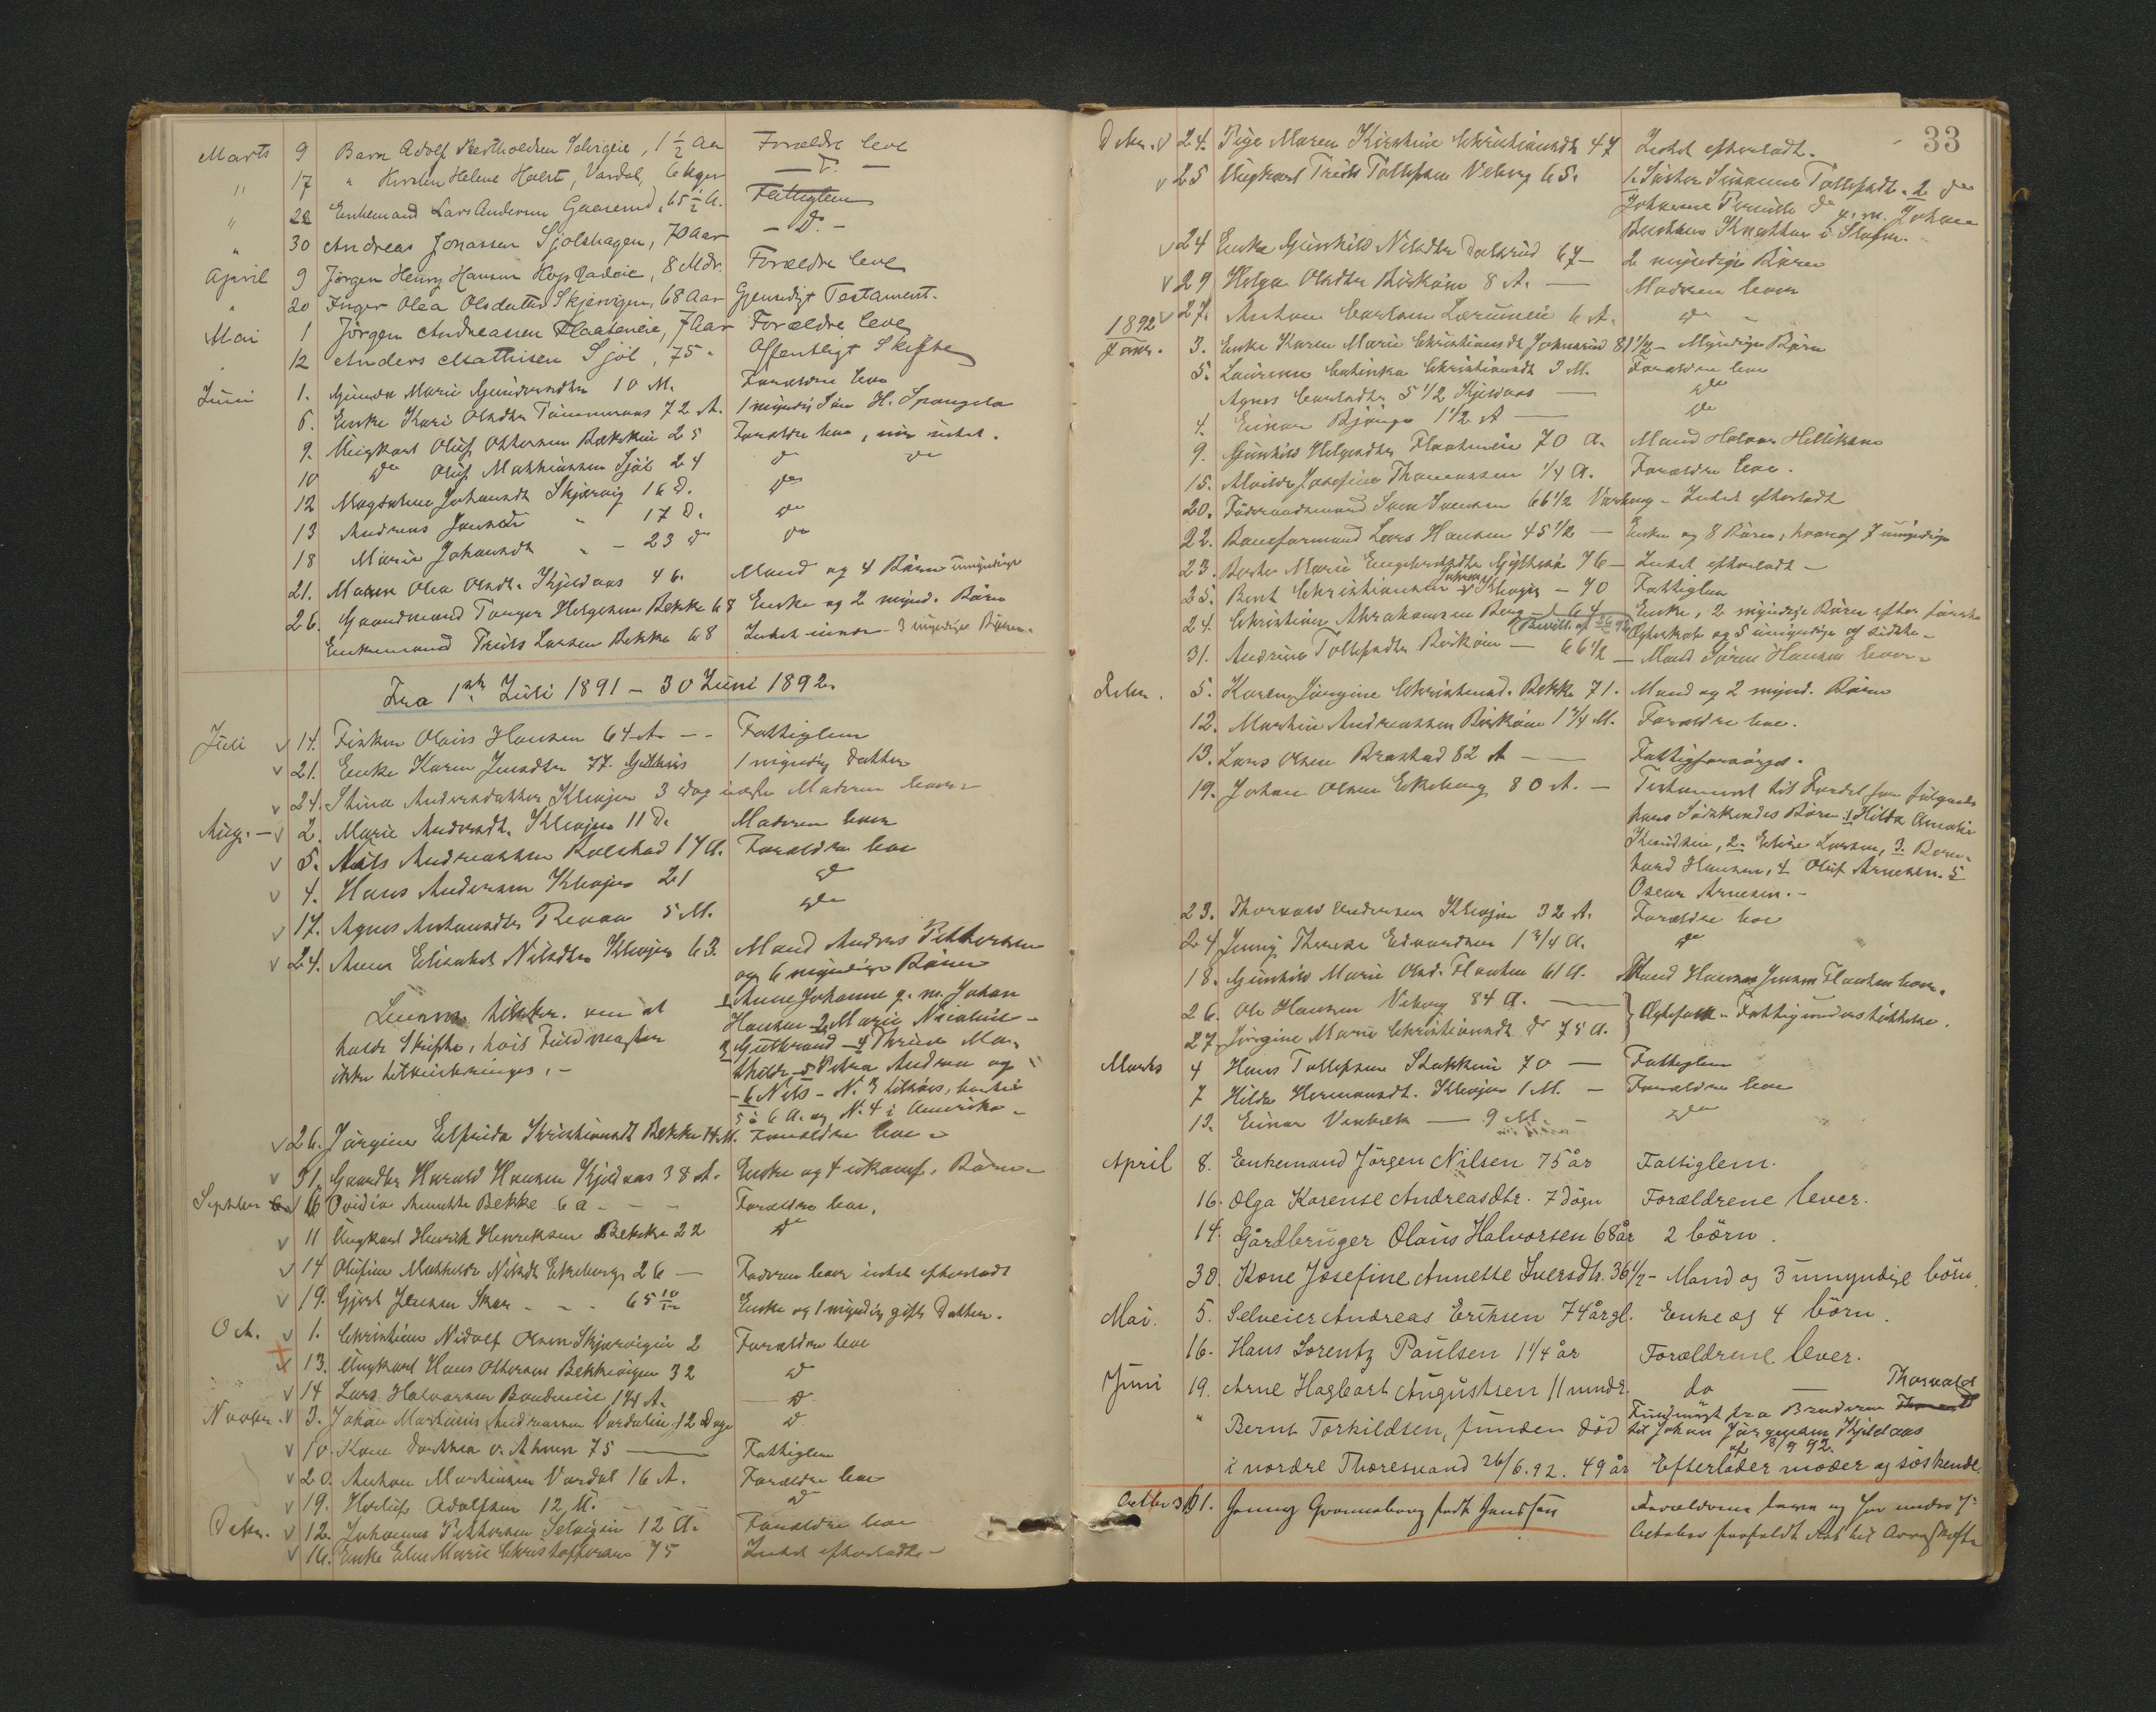 Marts 9 Barn Adolf Bertholdsen Selvigeie, 1 1/2 Aar Forældre leve
" 17 " Kirsten Helene Holst, Vardal, 6 Uger — D. —
" 22 Enkemand Lars Andersen Gaaserud, 65 1/2 A. Fattiglem
" 30 Andreas Jonassen Sjölshagen, 70 Aar — D. —
April 9 Jörgen Henry Hansen , 8 Mdr. Forældre leve
" 20 Inger Olea Olsdatter Skjærvigen, 68 Aar Gjensidigt Testament.
Mai 1 Jörgen Andreassen Flaateneie, 7 Aar Forældre leve
" 12 Anders Mathisen Sjöl, 75 " Offentligt Skifte
Juni 1. Gunda Marie Gundersdtr 10 M. Forældre leve
6. Enke Kari Olsdtr Tømmeraas 72 A. 1 myndig Søn H. Spangelo
9. Ungkarl Oluf Ottersen Bækkeie 25 Forældre leve, eier intet.
10 do Oluf Mathiassen Sjöl 24 do do
12 Magdalene Johansdt Skjærvig 16 D. do
13 Andreas " 17 D. do
18 Marie Johansdt " - 23 do do
21. Maren Olea Olsdt. Kjeldaas 46. Mand og 4 Børn umyndige
26. Gaardmand Torger Helgesen Bekke 68 Enke og 2 mynd. Børn
Enkemand Truls Larsen Bekke 68 Intet - 3 myndige Børn.
Fra 1ste Juli 1891 - 30 Juni 1892.
Juli v 14. Fisker Olaus Hansen 64 A. -- Fattiglem
v 21. Enke Karen Jensdtr 77. 1 myndig Datter
v 24. Stina Andersdatter Klevjer 3 Dage Moderen lever
Aug. - v 2. Marie Andersdt. Klevjer 11 D. Moderen lever
v 5. Nils Andreassen Bolstad 17 A. Forældre leve
v 4. Hans Andersen Klevjer 21 do
v 17. Agnes Antonsdtr Revaa 5 M. do
v 24. Anne Elisabet Nilsdtr Klevjer 63. Mand Anders Pettersen
og 6 myndige Børn
1 Anne Johanne g. m. Johan
Lensm. tilskr. om at Hansen 2 Marie Nicoline -
holde Skifte, hvis Fuldmagter 3 Gulbrand - 4 Thrine Ma-
ikke tilveiebringes. - thilde - 5 Petra Andrea og
- 6 Nils - N. 3 tilsøs, borte i
5 à 6 A. og N. 4 i Amerika -
v 26. Jørgine Elfrida Kristiansdt Bekke 14 M. Forældre leve -
v 31. Gaardbr Harald Hansen Kjeldaas 38 A. Enke og 4 ukonf. Børn -
Septbr v 6 Ovidia Bekke 6 a - - - Forældre leve.
v 11 Ungkarl Henrik Henriksen Bekke 22 do
v 14 Olufine Mathilde Nilsdt Ekeberg 26 — Faderen lever intet efterladt
v 19. Gjert Jensen Skar - - - 65 10/12 Enke og 1 myndig gift Datter.
Oct. v 1. Christian Nidolf Olsen Skjærvigen 2 Forældre leve
v 13. Ungkarl Hans Ottersen Bekkevigen 32 do
v 14 Lars Halvorsen 1 3/4 A. — D
Novbr. v 3. Johan Martinius Andreassen Vardalen 12 Dage D.
v 10. Kone Dorthea 75 — Fattiglem
v 20. Anton Martinsen Vardal 16 A. Forældre leve
v 19. Herluf Adolfsen 12 U. do
Decbr. v 12. Johannes Pettersen Selvigen 12 U. Forældre leve
v 16. Enke Elen Marie Christoffersen 75 Intet efterladt -
33
Decbr. v 24. Pige Maren Kirstine Christiansdt 47 Intet efterladt.
v 25 Ungkarl Truls Tollefsen Veberg 65. 1. Søster Susanne Tollefsdt. 2 do
Johanne do g. m. Johan
v 24 Enke Gunhild Nilsdtr Dalsrud 67 - 2 myndige Børn
v 29 Helga Olsdtr Birkøen 8 A. — Moderen lever
v 27. Anton Carlsen 6 A. do "
1892
Janr. 3. Enke Karen Marie Christiansdt Johnsrud 81 1/2 - Myndige Børn
5. Laurense Catinka Christiansdt 3 M. Forældre leve
Agnes Carlsdtr 5 1/2 Kjeldaas — do
4. Einar Bjänge 1 1/2 A — do
9. Gunhild Helgesdtr Flaateneie 70 A. Mand Halvor
15. Alvilde Josefine Thomassen 1/4 A. Forældre leve.
20. Føderaadsmand Svend Svendsen 66 1/2 Varberg - Intet efterladt
22. Baneformand Lars Hansen 45 1/2 — Enke og 8 Børn, hvoraf 7 umyndige
23. Marie Engebretsdtr 76 - Intet efterladt -
25. Bent Christiansen Klevjer - 70 Fattiglem
24. Christian Abrahamsen Berg - 64 Enke, 2 myndige Børn efter første
Ægteskab og 5 umyndige af sidste -
31. Andrine Tollefsdtr Birkøen — 66 1/2 — Mand Søren Hansen lever -
Febr. 5. Karen Jørgine Christensd. Bekke 71. Mand og 2 mynd. Børn
12. Martin Andreassen Birkøen 1 3/4 M. Forældre leve.
13. Lars Olsen Brastad 82 A — — Fattigforsørget.
19. Johan Olsen Ekeberg 80 A. — Testament til Fordel for følgende
hans Søskendes Børn 1 Hilda Amalie
Knudsen, 2. Larsen, 3. Bern-
hard Hansen, 4. Oluf Arnesen. 5
Oscar Arnesen. -
23. Thorvald Andersen Klevjer 32 A. Forældre leve
24 Jenny Therese Edvardsen 1 3/4 A. do
18. Gunhild Marie Olsd. Flaaten 61 A. Mand Hans Jensen Flaaten lever.
26. Ole Hansen Veberg 84 A. — Ægtefolk - Fattigunderstøttelse.
27 Jørgine Marie Christiansdt do 75 A.
Marts 4 Hans Tollefsen Stokkeeie 70 — Fattiglem
7 Hilda Hermansdt. Klevjer 1 M. - Forældre leve
13. Einar Venbek — 9 M. - do
April 8. Enkemand Jörgen Nilsen 75 år Fattiglem.
16. Olga Karense Andreasdtr. 7 dögn Forældrene lever.
14. Gårdbruger Olaus Halvorsen 68 år 2 börn.
30. Kone Josefine Annette Iversdtr. 36 1/2 - Mand og 3 umyndige börn.
Mai. 5. Selveier Andreas Eriksen 74 år gl. Enke og 4 börn.
16. Hans Lorentz Paulsen 1 1/4 år Forældrene lever.
Juni 19. Arne Hagbart Augustsen 11 mndr. do — Thorvald
Fuldmagt fra Broderen
" Bernt Torkildsen, funden död til Johan Jörgensen Kjeldaas
af 8/9 92.
i nordre Thoresvand 26/6.92. 49 år Efterlader moder og söskende.
Octbr 31. Jenny Gronneberg født Jansson Forældrene leve og har under 7de
October frafaldt Ret til Arv